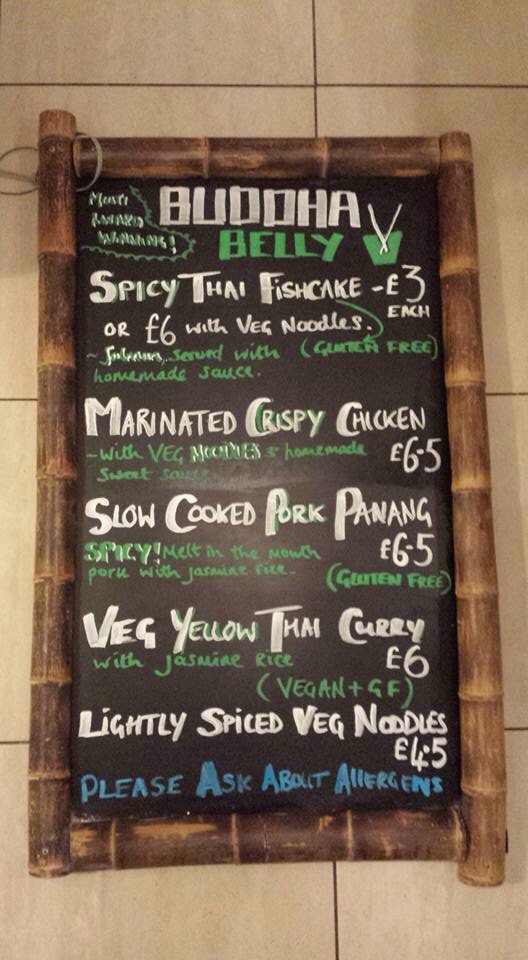 MULTI
AWARD
WINNING!
BUDDHA
BELLY
SPICY THAI FISHCAKE - £3
EACH
OR £6 with VEG NOODLES.
~ served with (GLUTEN FREE)
homemade sauce.
MARINATED CRISPY CHICKEN
~ with VEG NOODLES & homemade £6.5
Sweet sauce
SLOW COOKED PORK PANANG
SPICY! Melt in the mouth £6.5
pork with jasmine rice.
(GLUTEN FREE)
VEG YELLOW THAI CURRY
with jasmine RICE £6
(VEGAN + GF)
LIGHTLY SPICED VEG NOODLES
£4.5
PLEASE ASK ABOUT ALLERGENS